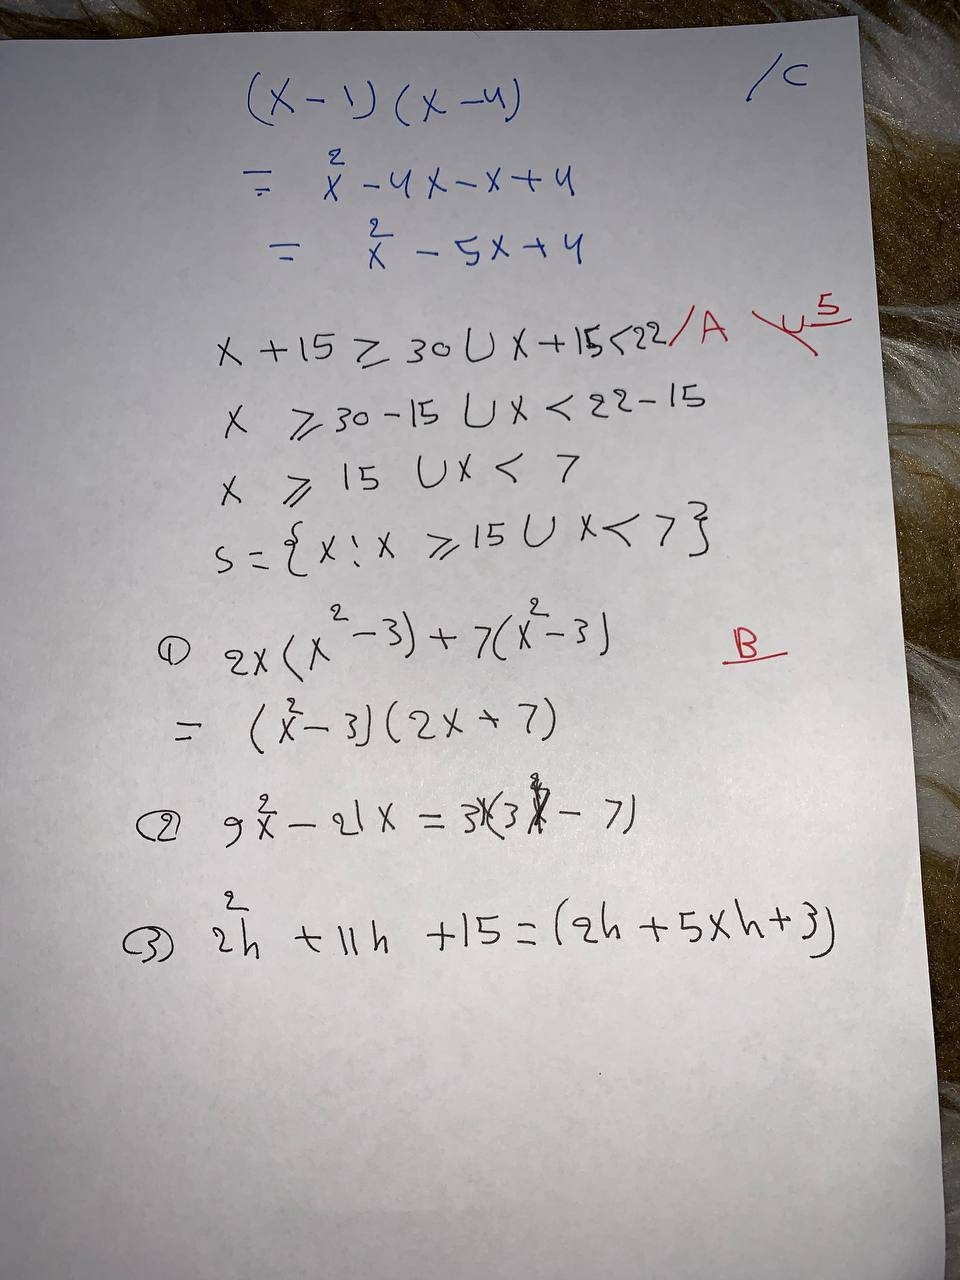 (x-1)(x-4) /C
= x² - 4x - x + 4
= x² - 5x + 4
x + 15 ≥ 30 ∪ x + 15 < 22 /A 5
x ≥ 30 - 15 ∪ x < 22 - 15
x ≥ 15 ∪ x < 7
S = {x! x ≥ 15 ∪ x < 7}
① 2x(x² - 3) + 7(x² - 3) B
= (x² - 3)(2x + 7)
② 9x² - 21x = 3x(3x - 7)
③ 2h² + 11h + 15 = (2h + 5)(h + 3)